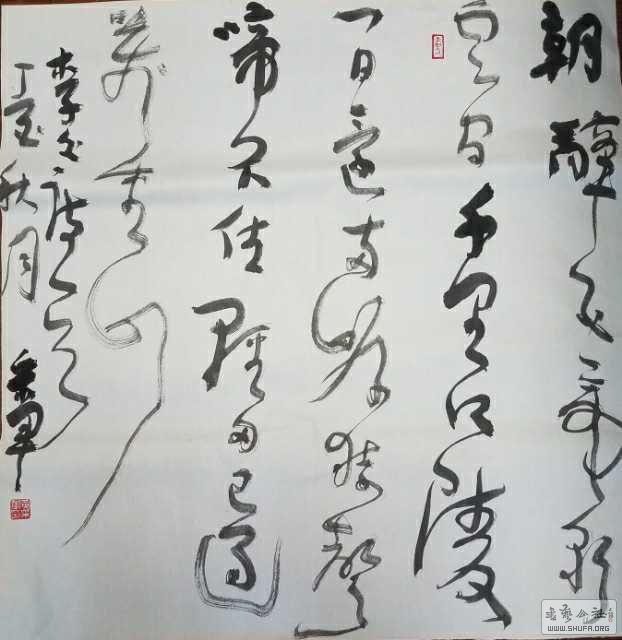 朝辭白帝彩
雲間千里江陵
一日還兩岸猿聲
啼不住輕舟已過
萬重山
李白詩一首
丁 秋月
书藝公社
WWW.SHUFA.ORG